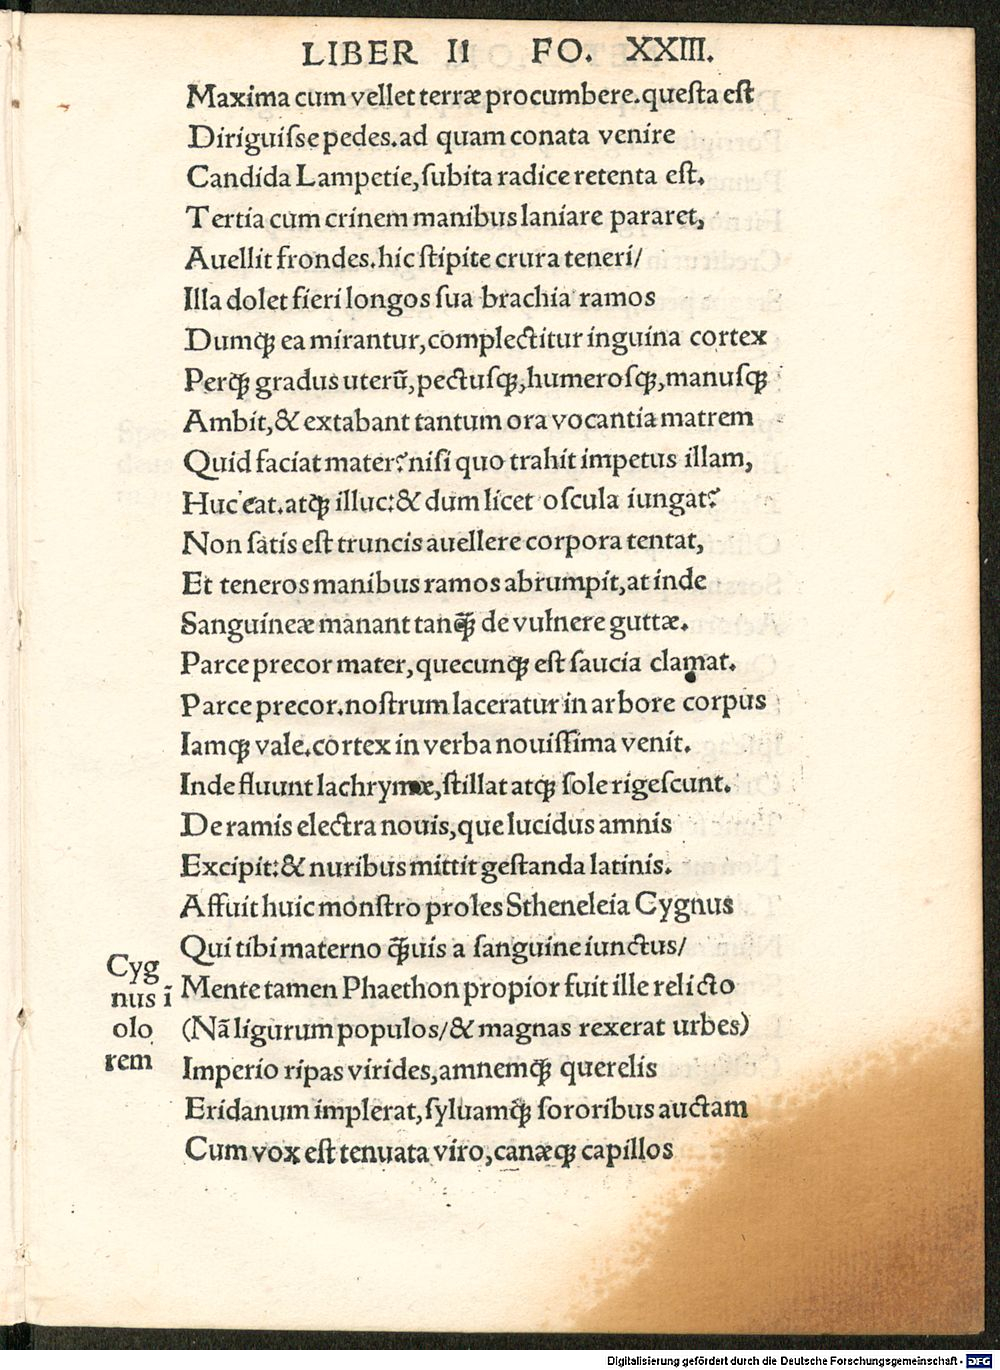 LIBER II FO. XXIII.
Maxima cum vellet terræ procumbere.questa est
Diriguisse pedes.ad quam conata venire
Candida Lampetie,subita radice retenta est.
Tertia cum crinem manibus laniare pararet,
Auellit frondes.hic stipite crura teneri/
Illa dolet fieri longos sua brachia ramos
Dumqꝫ ea mirantur,complectitur inguina cortex
Perqꝫ gradus uterū,pectusqꝫ,humerosqꝫ,manusqꝫ
Ambit,& extabant tantum ora vocantia matrem
Quid faciat mater?nisi quo trahit impetus illam,
Huc eat.atqꝫ illuc:& dum licet oscula iungat?
Non satis est truncis auellere corpora tentat,
Et teneros manibus ramos abrumpit,at inde
Sanguineæ manant tanq̄ꝫ de vulnere guttæ.
Parce precor mater,quecunqꝫ est saucia clamat.
Parce precor.nostrum laceratur in arbore corpus
Iamqꝫ vale.cortex in verba nouissima venit.
Inde fluunt lachrymæ,stillat atqꝫ sole rigescunt.
De ramis electra nouis,que lucidus amnis
Excipit:& nuribus mittit gestanda latinis.
Affuit huic monstro proles Stheneleia Cygnus
Qui tibi materno q̄ꝫuis a sanguine iunctus/
Mente tamen Phaethon propior fuit ille relicto
(Nā ligurum populos/& magnas rexerat urbes)
Imperio ripas virides,amnemqꝫ querelis
Eridanum implerat,syluamqꝫ sororibus auctam
Cum vox est tenuata viro,canæqꝫ capillos
Cyg
nus ī
olo
rem
Digitalisierung gefördert durch die Deutsche Forschungsgemeinschaft - DFG